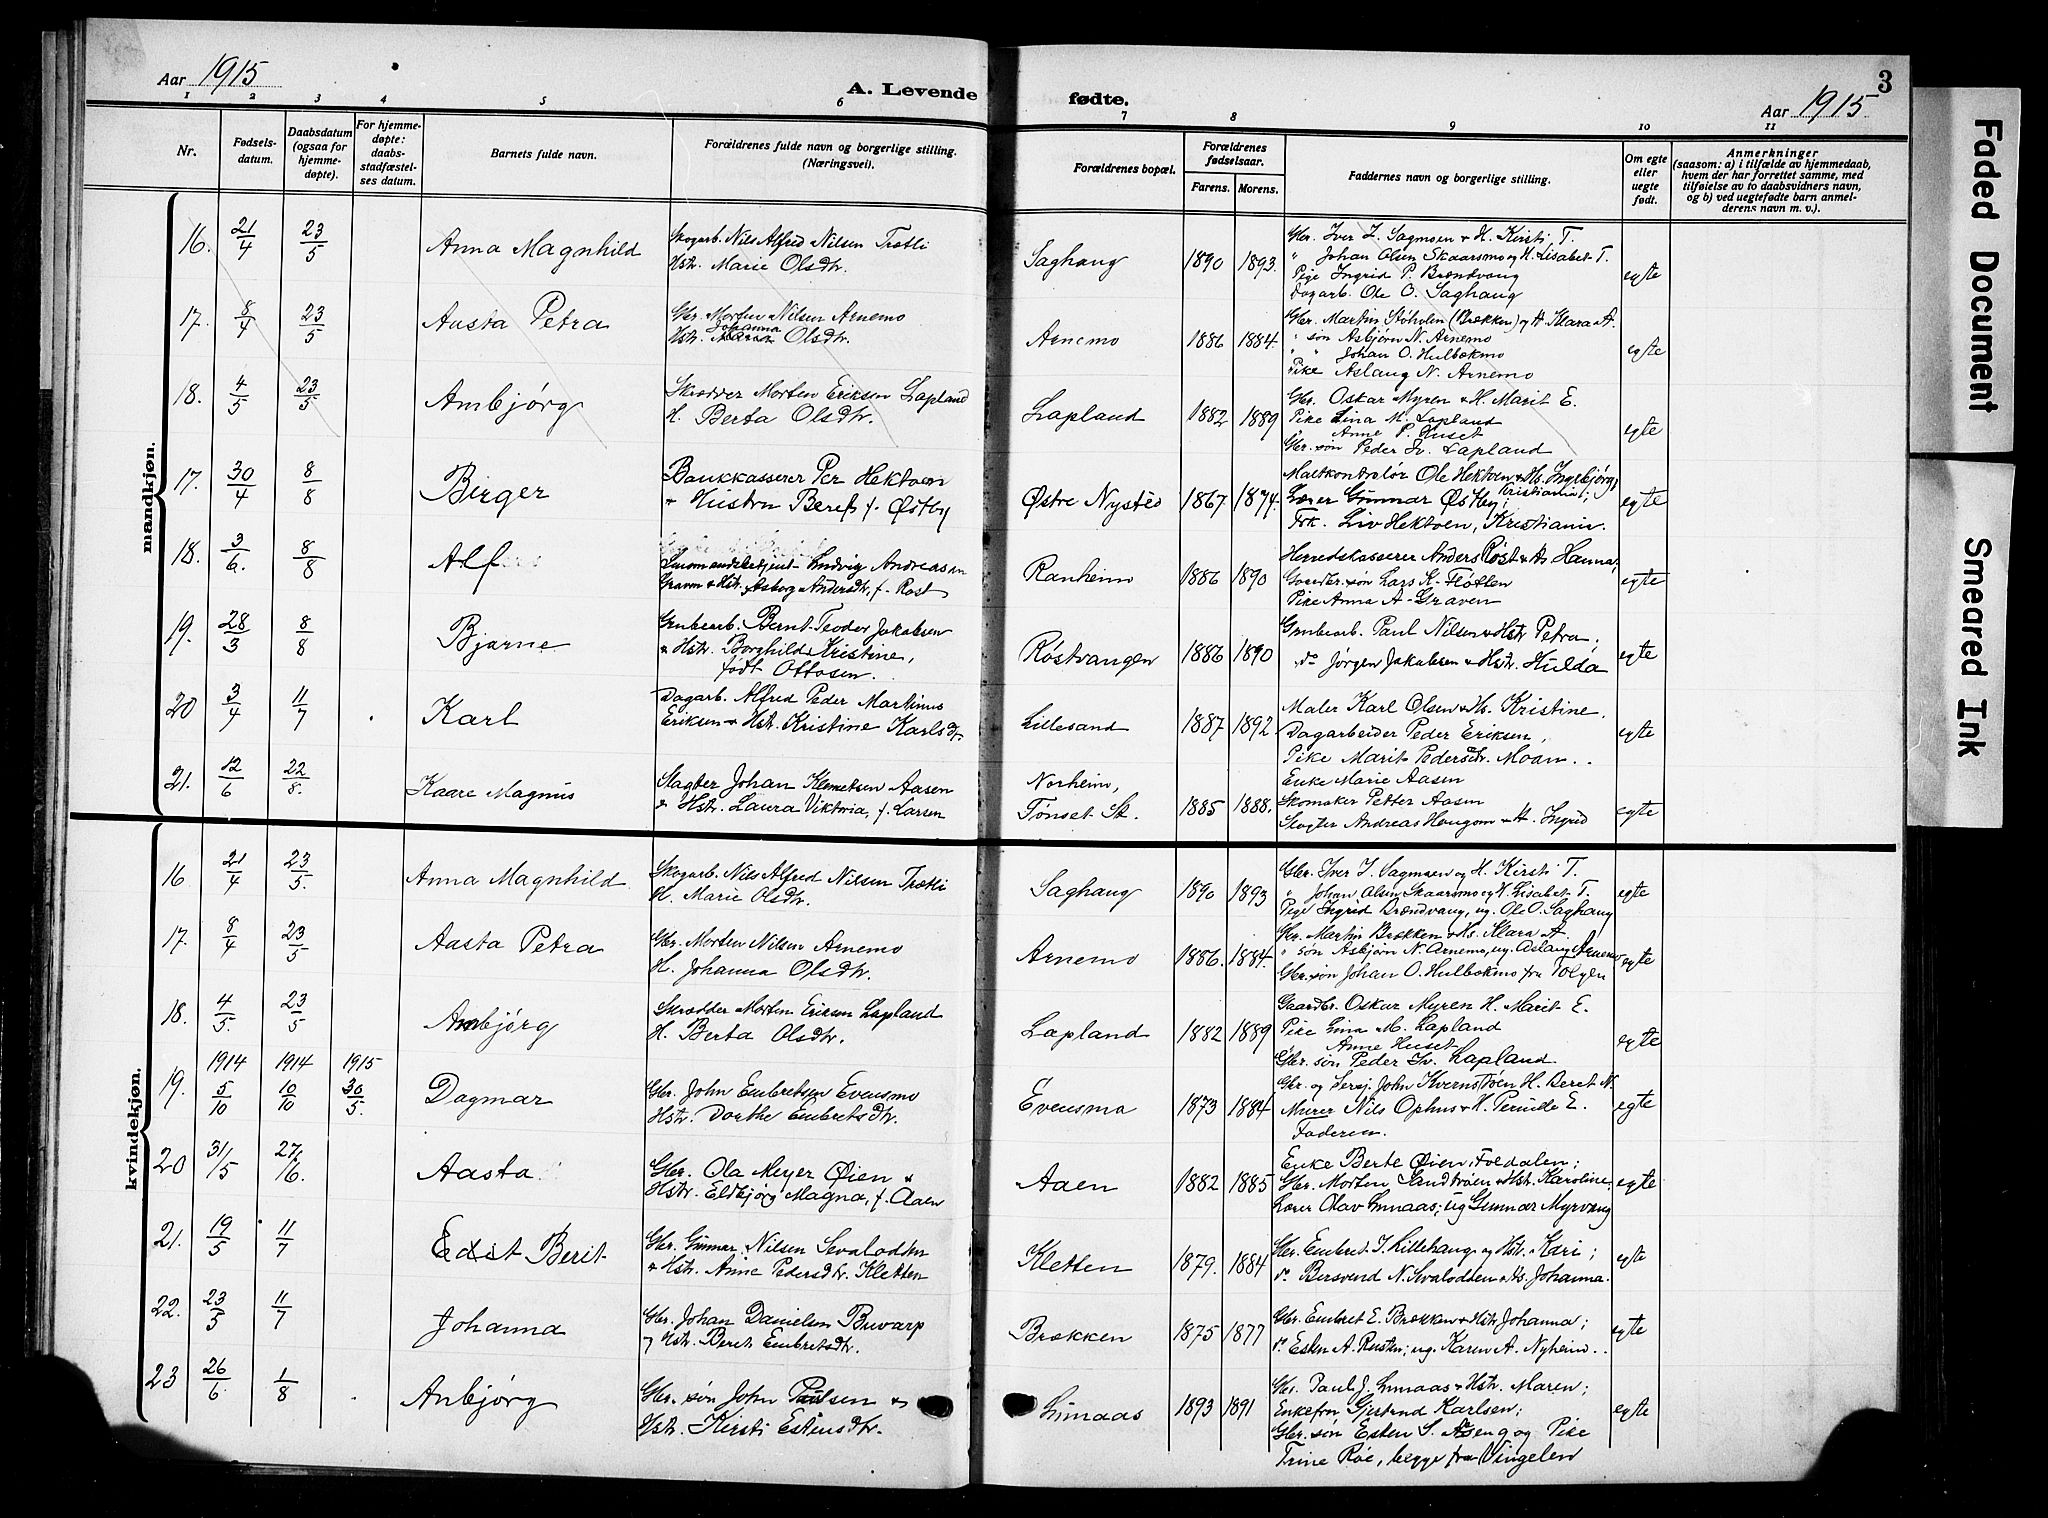 Aar 1915
A. Levende fødte.
Aar 1915
3
1 2 3 4 5 6 7 8 9 10 11
Nr.
Fødsels-
datum.
Daabsdatum
(ogsaa for
hjemme-
døpte).
For hjemme-
døpte:
daabs-
stadfæstel-
ses datum.
Barnets fulde navn.
Forældrenes fulde navn og borgerlige stilling.
(Næringsvei).
Forældrenes bopæl.
Forældrenes
fødselsaar.
Farens. Morens.
Faddernes navn og borgerlige stilling.
Om egte
eller
uegte
født.
Anmerkninger
(saasom: a) i tilfælde av hjemmedaab,
hvem der har forrettet samme, med
tilføielse av to daabsvidners navn,
og b) ved uegtefødte barn anmel-
derens navn m. v.).
mandkjøn.
16. 21/4 23/5 Anna Magnhild
Skogarb. Nils Alfred Nilsen Trætli
Hstr. Marie Olsdtr.
Saghaug 1890 1893.
Gbr. Iver I. Sagmoen & H. Kirsti T.
" Johan Olsen Skaarsmo og H. Lisabet T.
Pige Ingrid P. Brændvang
Dagarb. Ole O. Saghaug
egte
17. 8/4 23/5 Aasta Petra
Gbr. Morten Nilsen Arnemo
Johanna
Hstr. Olsdtr.
Arnemo 1886 1884.
Gbr. Martin Støholen (Brækken) og H. Klara A.
" søn Asbjørn N. Arnemo
" " Johan O. Hulbækmo
Pike Aslaug N. Arnemo
egte
18. 4/5 23/5 Ambjørg
Skrædder Morten Eriksen Lapland
H. Berta Olsdtr.
Lapland 1882 1889
Gbr. Oskar Myren & H. Marit E.
Pike Lina M. Lapland
" Anne P. Huset
Gbr. søn Peder Iv. Lapland
egte
17. 30/4 8/8 Birger
Bankkasserer Per Hektoen
& Hustru Beret f. Østby
Østre Nysted 1867. 1874.
Maltkontrolør Ole Hektoen & Hs. Ingebjørg,
Kristiania;
Lærer Gunnar Østby;
Frk. Liv Hektoen, Kristiania.
egte
18. 3/6. 8/8 Alf
Lensmandsbetjent Ludvig Andreasen
Graven & Hstr. Asborg Andersdtr, f. Røst
Ranheim 1886 1890
Herredskasserer Anders Røst & Hs Hanna,
Gaardbr. søn Lars K. Fløtten
Pike Anna A. Graven
egte
19. 28/3 8/8 Bjarne
Grubearb. Bernt Teodor Jakobsen
& Hstr. Borghild Kristine,
født Ottosen.
Røstvangen 1886 1890
Grubearb. Paul Nilsen & Hstr Petra;
do Jørgen Jakobsen & Hstr. Hulda
egte
20 3/4 11/7 Karl
Dagarb. Alfred Peder Martinus
Eriksen & Hstr. Kristine Karlsdtr.
Lillesand 1887 1892
Maler Karl Olsen & Hs. Kristine.
Dagarbeider Peder Eriksen,
Pike Marit Pedersdtr. Moan..
egte
21. 12/6 22/8. Kaare Magnus
Slagter Johan Klemetsen Aasen
& Hstr. Laura Viktoria, f. Larsen
Norheim,
Tønset St. 1885 1888.
Enke Marie Aasen
Skomaker Petter Aasen
Slagter Andreas Haugom & H. Ingrid
egte
kvindekjøn.
16 21/4 23/5. Anna Magnhild
Skogarb. Nils Alfred Nilsen Trætli
H. Marie Olsdtr.
Saghaug 1890 1893
Gbr. Iver I. Sagmoen og H. Kirsti T.
" Johan Olsen Skaarsmo og H. Lisabet T.
Pige Ingrid Brændvang, ug. Ole O. Saghaug
egte
17. 8/4 23/5 Aasta Petra
Gbr. Morten Nilsen Arnemo
H. Johanna Olsdtr.
Arnemo 1886. 1884.
Gbr. Martin Brækken & Hs. Klara A.
" søn Asbjørn N. Arnemo, ug. Aslaug Arnemo
Gbr. søn Johan O. Hulbækmo fra Tolgen
egte
18. 4/5. 23/5 Ambjørg
Skrædder Morten Eriksen Lapland
H. Berta Olsdtr.
Lapland 1882 1889
Gaardbr. Oskar Myren H. Marit E.
Pike Lina M. Lapland
" Anne Huset
Gbr. søn Peder Iv. Lapland.
egte
1914 1914 1915
19. 5/10 10/10 30/5. Dagmar
Gbr. John Embretsen Evensmo
Hstr. Dorthe Embretsdtr.
Evensmo 1873 1884
Gbr. og Sersj. John Kvernstrøen H. Beret N.
Murer Nils Ophus & H. E.
Faderen.
egte
20 31/5 27/6. Aasta
Gbr. Ola Meyer Øien &
Hstr. Eldbjørg Magna, f. Aaen
Aaen 1882 1885
Enke Berte Øien, Foldalen;
Gbr. Morten Sandtrøen & Hstr. Karoline;
Lærer Olav Lunaas; ug Gunnar Myrvang
egte
21. 19/5 11/7 Edit Berit
Gbr. Gunnar Nilsen Sevalodten
& Hstr. Anne Pedersdtr. Kletten
Kletten 1879. 1884
Gbr. Embret J. Lillehaug og Hstr. Kari;
do Bersvend N. Sevalodten & Hs. Johanna.
egte
22. 23/5 11/7 Johanna
Gbr. Johan Danielsen Buvarp
og Hstr. Beret Embretsdtr.
Brækken 1875 1877
Gbr. Embret E. Brækken & Hstr Johanna;
do Esten A. Rusten; ug. Karen A. Nyheim..
egte
23 26/6. 1/8 Anbjørg
Gbr. søn John Paulsen &
Hstr. Kirsti Estensdtr.
Lunaas 1893 1891
Gbr. Paul J. Lunaas & Hstr. Maren;
Enkefru Gjertrud Karlsen;
Gbr. søn Esten S. Aseng og Pike
Trine Røe, begge fra Vingelen
egte
Faded Document
Smeared Ink